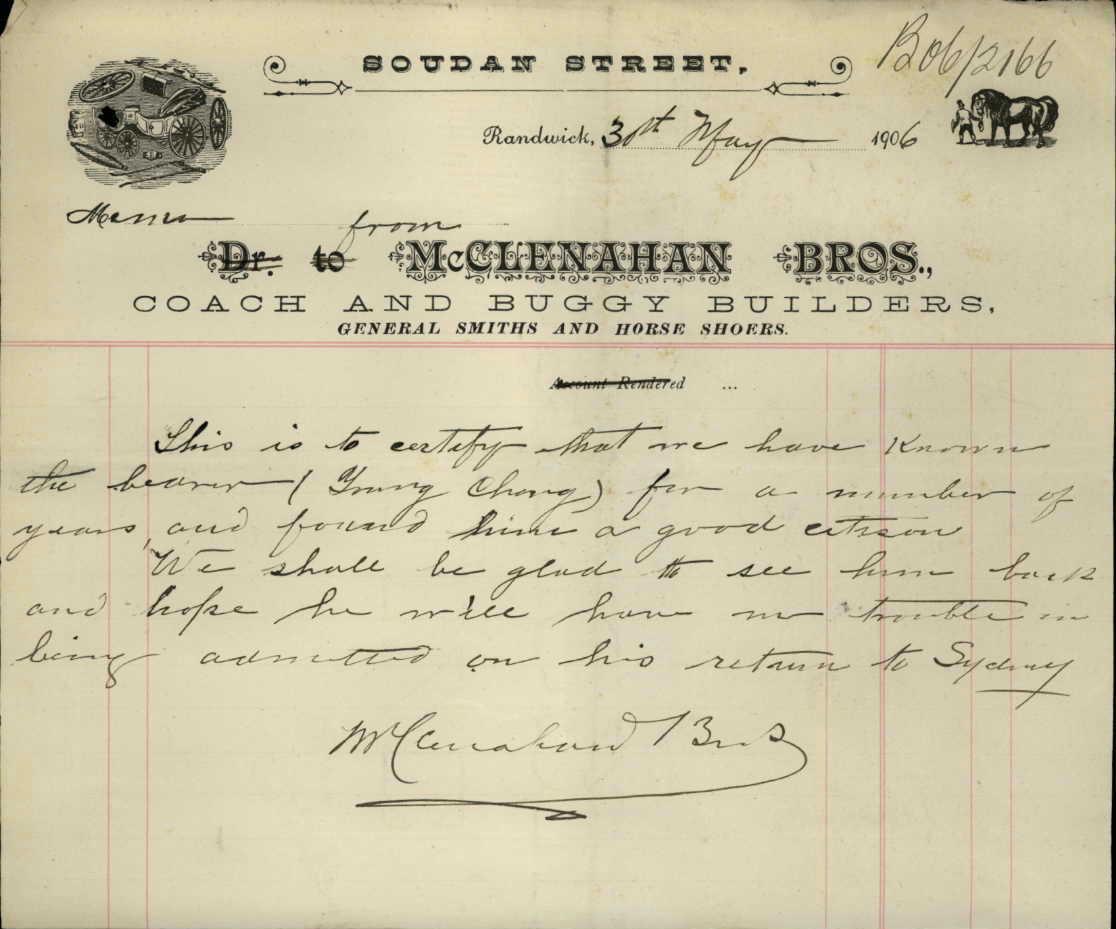 B06/2166
SOUDAN STREET,
Randwick, 30th May 1906
Memo from
Dr. to McCLENAHAN BROS.,
COACH AND BUGGY BUILDERS,
GENERAL SMITHS AND HORSE SHOERS.
Account Rendered ...
This is to certify that we have known
the bearer (Young Chong) for a number of
years, and found him a good citison
We shall be glad to see him back
and hope he will have no trouble in
being admitted on his return to Sydney
McClenahan Bros